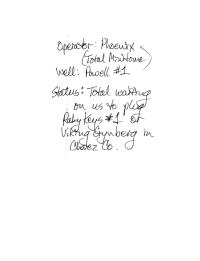 Operator: Phoenix
(Total Minatome)
Well: Powell #1
Status: Total waiting
on us to plug
Ruby Keys #1 or
Viking Grynberg in
Chavez Co.